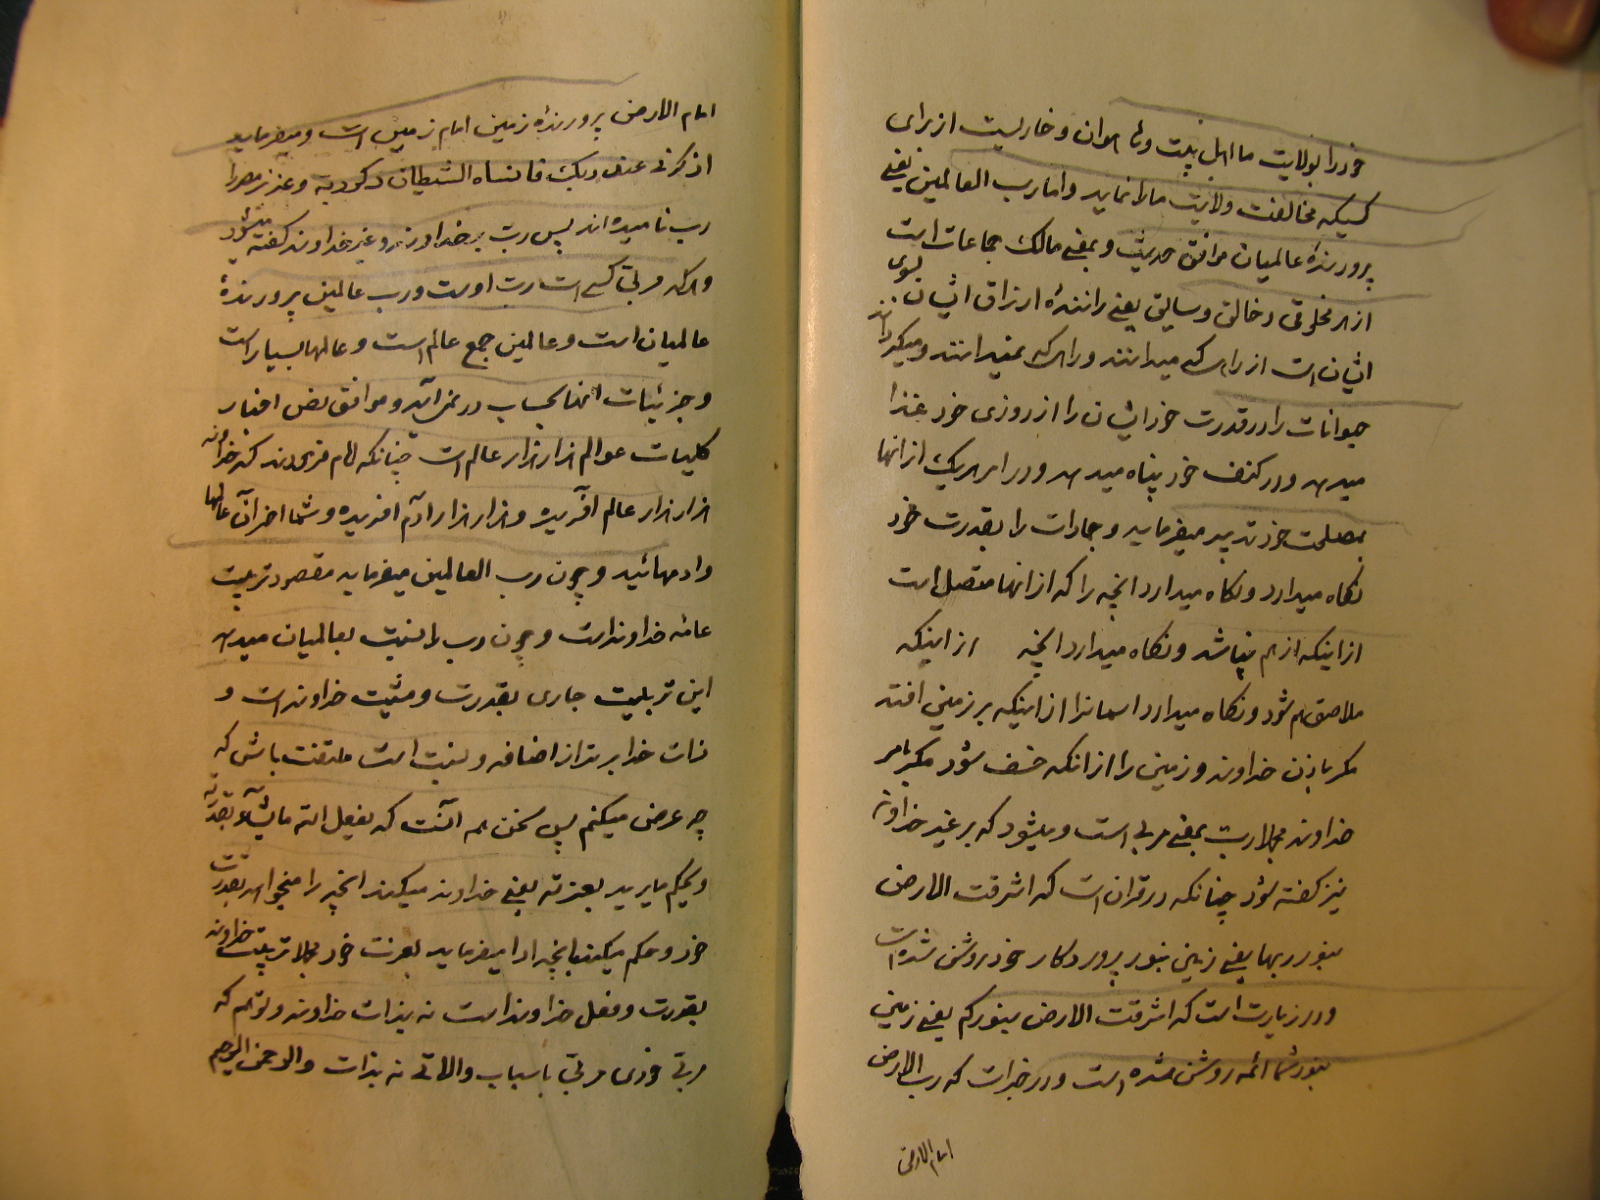 خود را بولایت ما اهل بیت و ما هوان و خاریست از برای
کسیکه مخالفت ولایت ما را نماید و اما رب العالمین یعنی
پرورندهٔ عالمیان موافق حدیث و بمعنی مالک جماعات است
از هر مخلوقی و خالق و سایق یعنی رانندهٔ ارزاق ایشان بسوی
ایشان است از راهی که میدانند و راهی که نمیدانند و میگرداند
حیوانات را در قدرت خود ایشان را از روزی خود غذا
میدهد و در کنف خود پناه میدهد و در امر هر یک از انها
بمصلحت خود تدبیر میفرماید و جمادات را بقدرت خود
نگاه میدارد و نگاه میدارد انچه را که از انها متصل است
از اینکه از هم بپاشد و نگاه میدارد انچه از اینکه
ملاصق هم شود و نگاه میدارد اسمانرا از اینکه بر زمین افتد
مگر باذن خداوند و زمین را از انکه خسف شود مگر بامر
خداوند مجملا رب بمعنی مربی است و میشود که بر غیر خداوند
نیز گفته شود چنانکه در قران است که اشرقت الارض
بنور ربها یعنی زمین بنور پروردگار خود روشن شده است
و در زیارت است که اشرقت الارض بنورکم یعنی زمین
بنور شما ائمه روشن شده است و در خبر است که رب الارض
امام الارض
امام الارض پرورندهٔ زمین امام زمین است و میفرماید
اذکرنی عند ربک فانساه الشیطان ذکر ربه و عزیز مصر را
رب نامیده اند پس رب بر خداوند و غیر خداوند گفته میشود
و هر که مربی کسی است رب اوست و رب عالمین پرورندهٔ
عالمیان است و عالمین جمع عالم است و عالمها بسیار است
و جزئیات انها بحساب در نمی آید و موافق بعض اخبار
کلیات عوالم هزار هزار عالم است چنانکه امام فرمودند که خداوند
هزار هزار عالم آفریده و هزار هزار ادم افریده و شما اخر آن عالمها
و ادمهائید و چون رب العالمین میفرماید مقصود تربیت
عامه خداوند است و چون رب را نسبت بعالمیان میدهد
این تربیت جاری بقدرت و مشیت خداوند است و
ذات خدا برتر از اضافه و نسبت است ملتفت باش که
چه عرض میکنم پس سخن همه آنست که یفعل الله ما یشآء بقدرته
و یحکم ما یرید بعزته یعنی خداوند میکند انچه را میخواهد بقدرت
خود و حکم میکند بانچه اراده میفرماید بعزت خود مجملا تربیت خداوند
بقدرت و فعل خداوند است نه بذات خداوند و تو هم که
مربی خودی مربی باسباب والاتی نه بذات والرحمن الرحیم